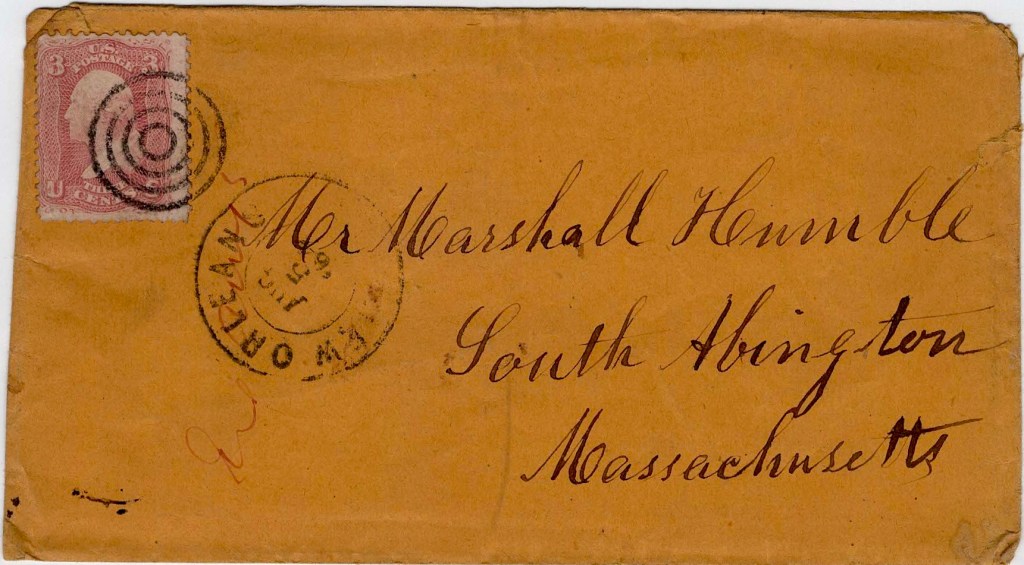 3 U.S. 3
POSTAGE
U
THREE
CENTS
NEW ORLEANS
AUG
5
Mr Marshall Humble
South Abington
Massachusetts